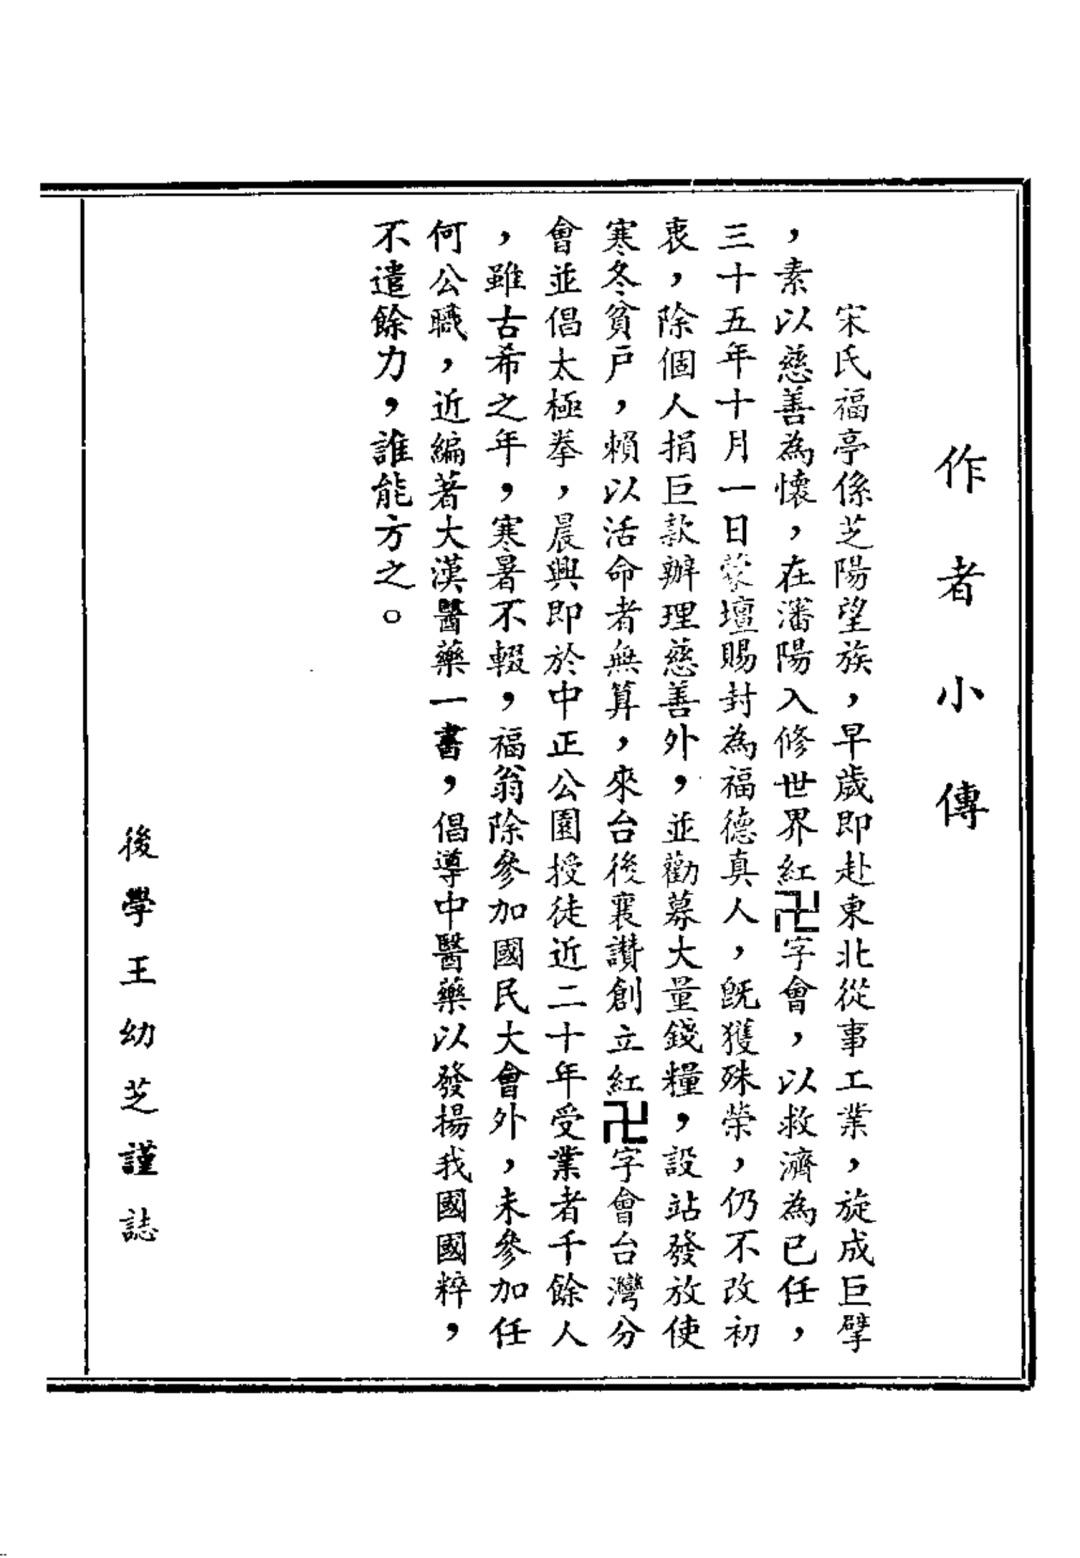 作者小傳
宋氏福亭係芝陽望族，早歲即赴東北從事工業，旋成巨擘
，素以慈善為懷，在瀋陽入修世界紅卍字會，以救濟為已任，
三十五年十月一日蒙壇賜封為福德真人，既獲殊榮，仍不改初
衷，除個人捐巨款辦理慈善外，並勸募大量錢糧，設站發放使
寒冬貧戶，賴以活命者無算，來台後襄讚創立紅卍字會台灣分
會並倡太極拳，晨興即於中正公園授徒近二十年受業者千餘人
，雖古希之年，寒暑不輟，福翁除參加國民大會外，未參加任
何公職，近編著大漢醫藥一書，倡導中醫藥以發揚我國國粹，
不遺餘力，誰能方之。
後學王幼芝謹誌